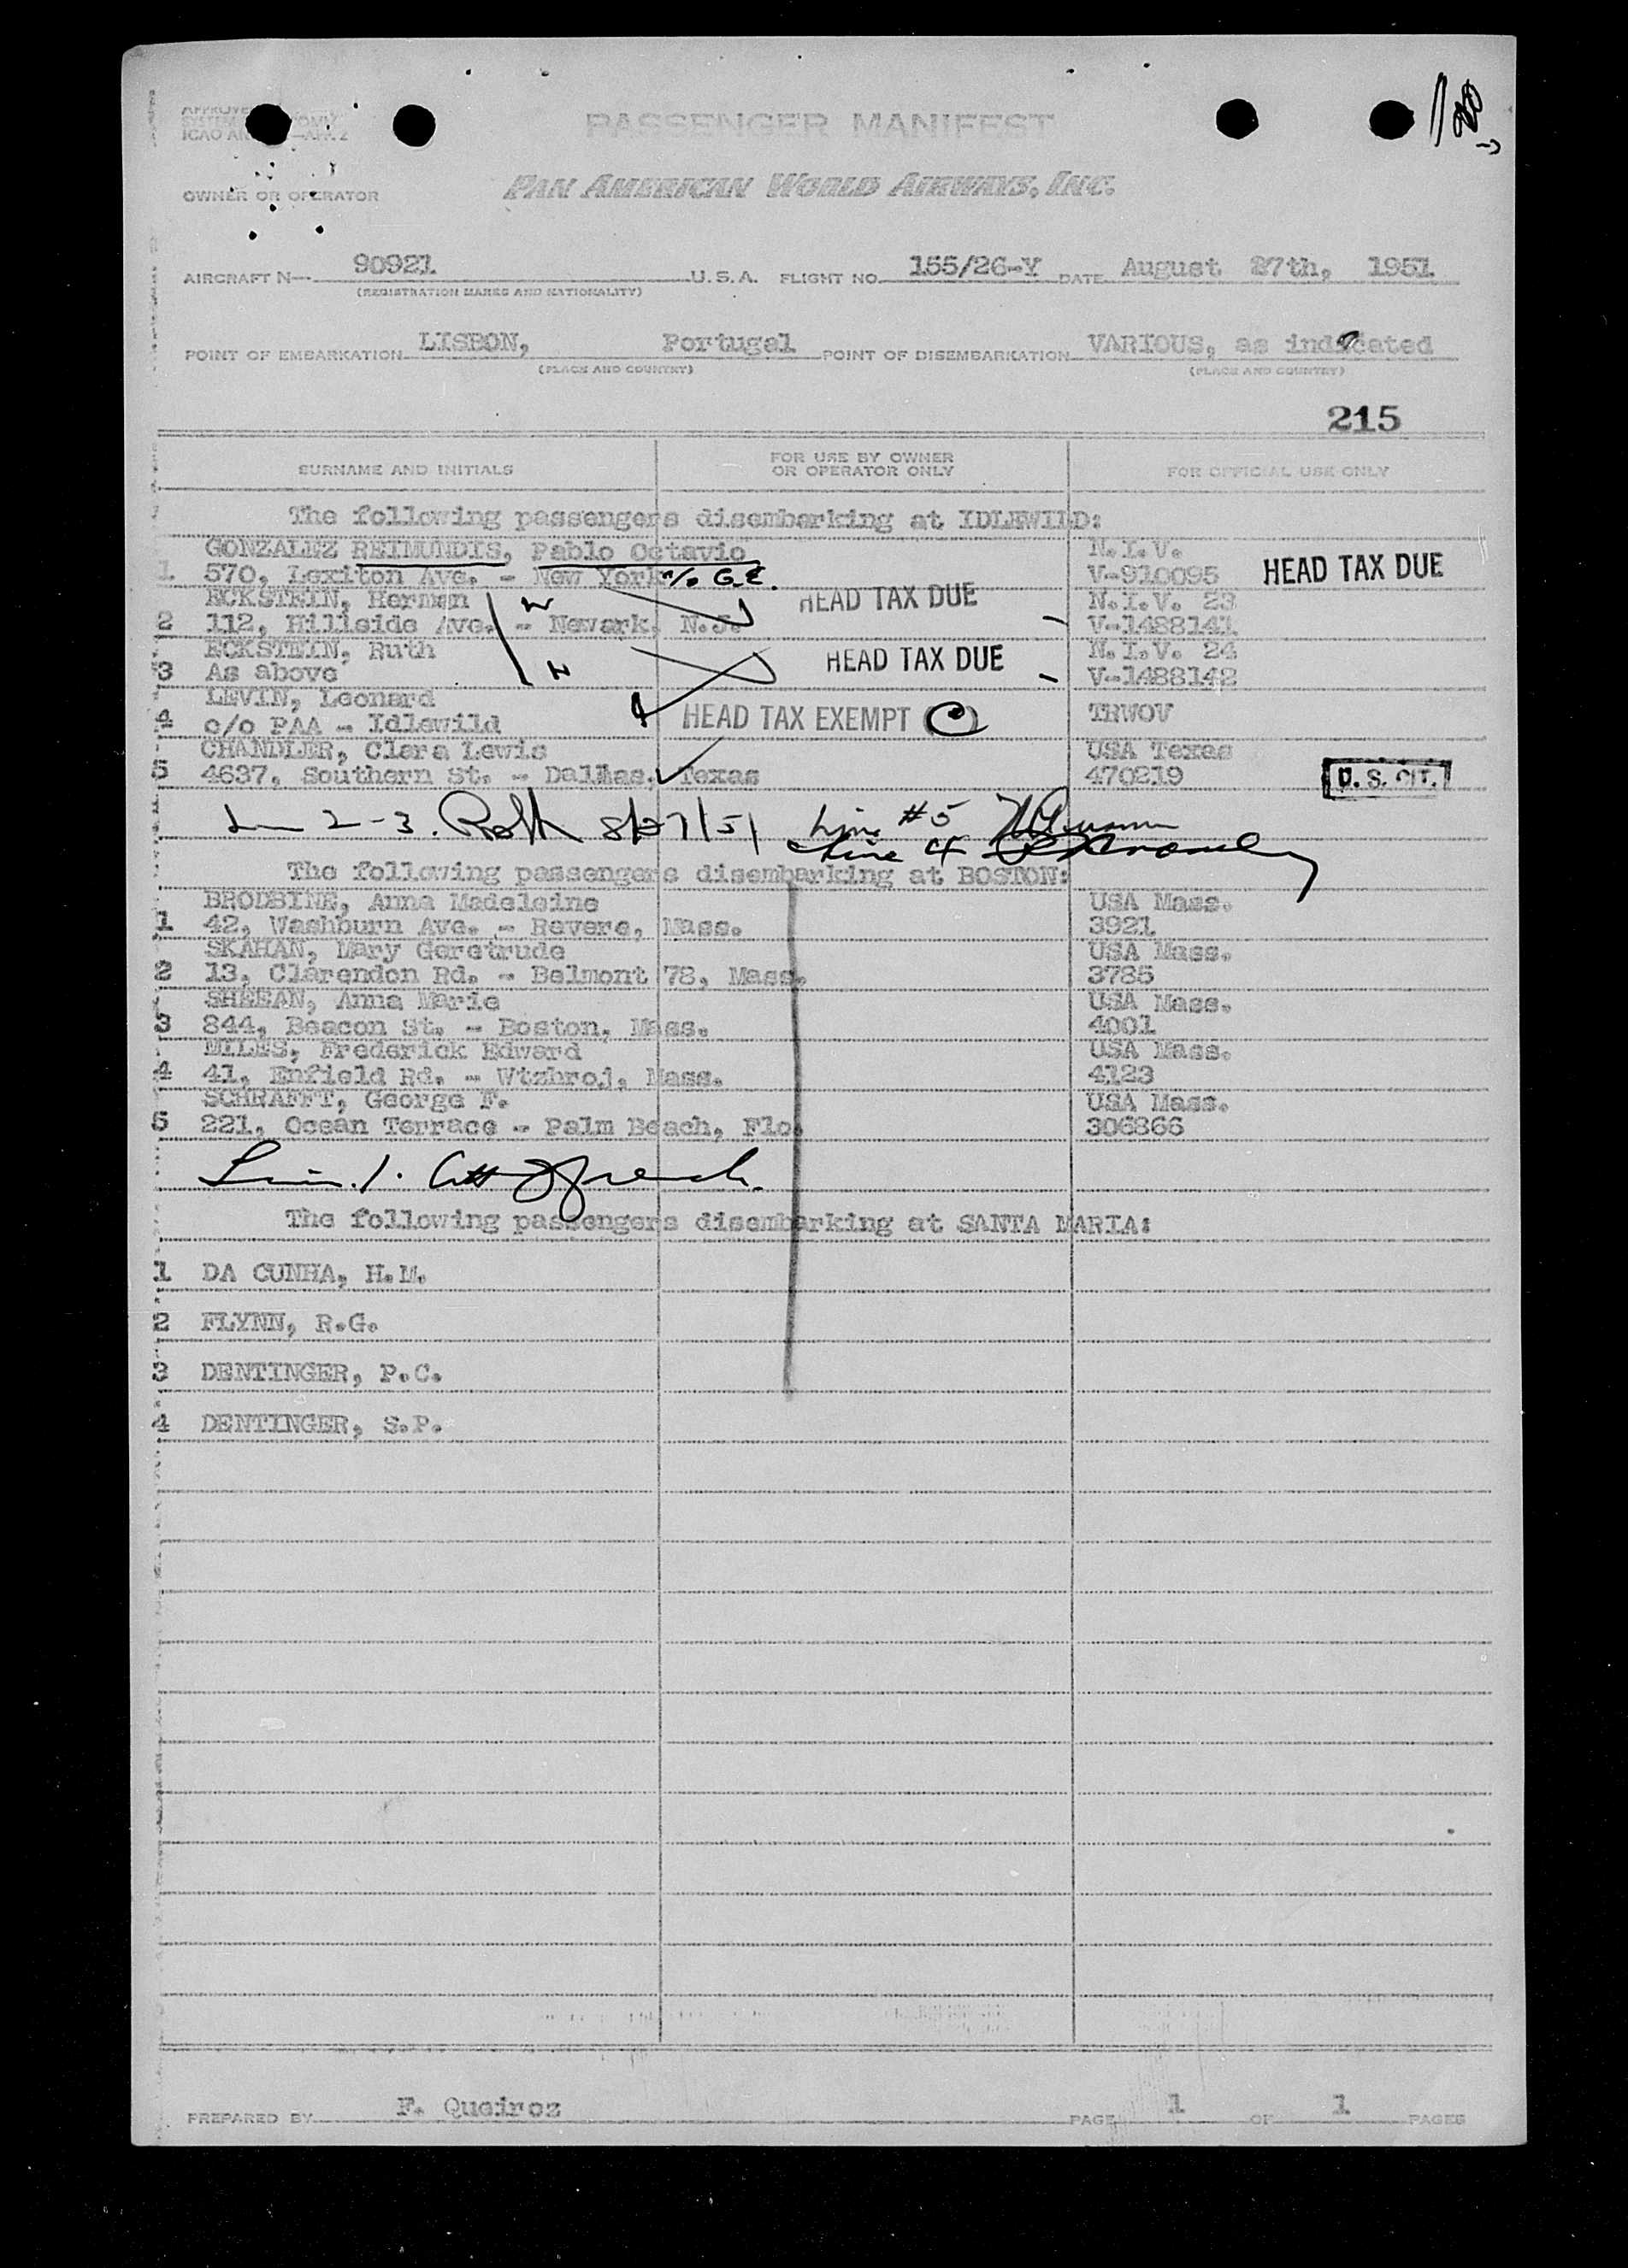 PASSENGER MANIFEST
OWNER OR OPERATOR
PAN AMERICAN WORLD AIRWAYS, INC.
AIRCRAFT N— 90921 U.S.A. FLIGHT NO. 155/26-Y DATE August 27th, 1951
(REGISTRATION MARKS AND NATIONALITY)
POINT OF EMBARKATION LISBON, Portugal POINT OF DISEMBARKATION VARIOUS, as indicated
(PLACE AND COUNTRY) (PLACE AND COUNTRY)
215
SURNAME AND INITIALS FOR USE BY OWNER OR OPERATOR ONLY FOR OFFICIAL USE ONLY
The following passengers disembarking at IDLEWILD:
GONZALEZ REIMUNDIS, Pablo Octavio N.I.V.
1 570, Lexiton Ave. - New York % G.E. V-910095 HEAD TAX DUE
ECKSTEIN, Herman HEAD TAX DUE N.I.V. 23
2 112, Hillside Ave. - Newark, N.J. V-1488141
ECKSTEIN, Ruth HEAD TAX DUE N.I.V. 24
3 As above V-1488142
LEVIN, Leonard
4 c/o PAA - Idlewild HEAD TAX EXEMPT TRWOV
CHANDLER, Clara Lewis USA Texas
5 4637, Southern St. - Dallas, Texas 470219 U. S. CIT.
2-3. Roth 8/27/51 Line #5
Line 4
The following passengers disembarking at BOSTON:
BRODBINE, Anna Madeleine USA Mass.
1 42, Washburn Ave. - Revere, Mass. 3921
SKAHAN, Mary Geretrude USA Mass.
2 13, Clarendon Rd. - Belmont 78, Mass. 3785
SHEEAN, Anna Marie USA Mass.
3 844, Beacon St. - Boston, Mass. 4001
MILES, Frederick Edward USA Mass.
4 41, Enfield Rd. - Wtzhroj, Mass. 4123
SCHRAFFT, George F. USA Mass.
5 221, Ocean Terrace - Palm Beach, Flo. 306866
The following passengers disembarking at SANTA MARIA:
1 DA CUNHA, H.M.
2 FLYNN, R.G.
3 DENTINGER, P.C.
4 DENTINGER, S.P.
PREPARED BY F. Queiroz PAGE 1 OF 1 PAGES